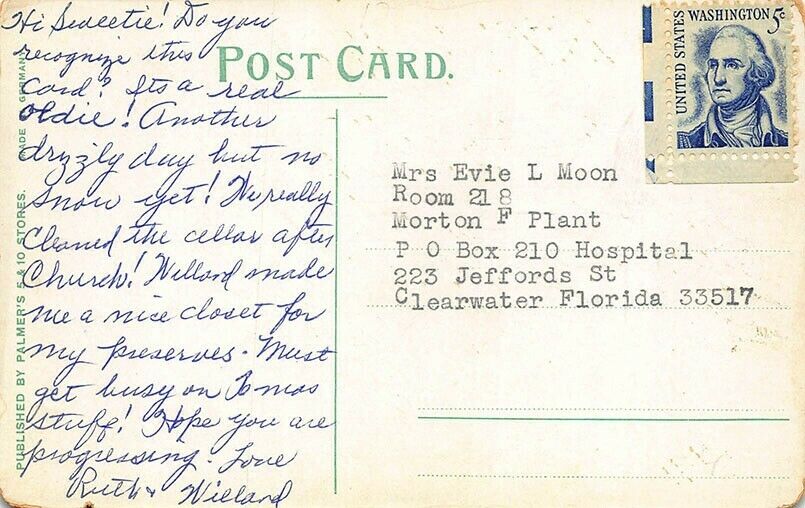 Hi Sweetie! Do you
recognize this
card? Its a real
oldie! Another
drizzly day but no
snow yet! We really
cleaned the cellar after
Church! Willard made
me a nice closet for
my preserves. Must
get busy on Xmas
stuff! Hope you are
progressing. Love
Ruth & Willard
POST CARD.
UNITED STATES WASHINGTON 5c
Mrs Evie L Moon
Room 218
Morton F Plant
P O Box 210 Hospital
223 Jeffords St
Clearwater Florida 33517
PUBLISHED BY PALMER'S 5 & 10 STORES. MADE GERMANY